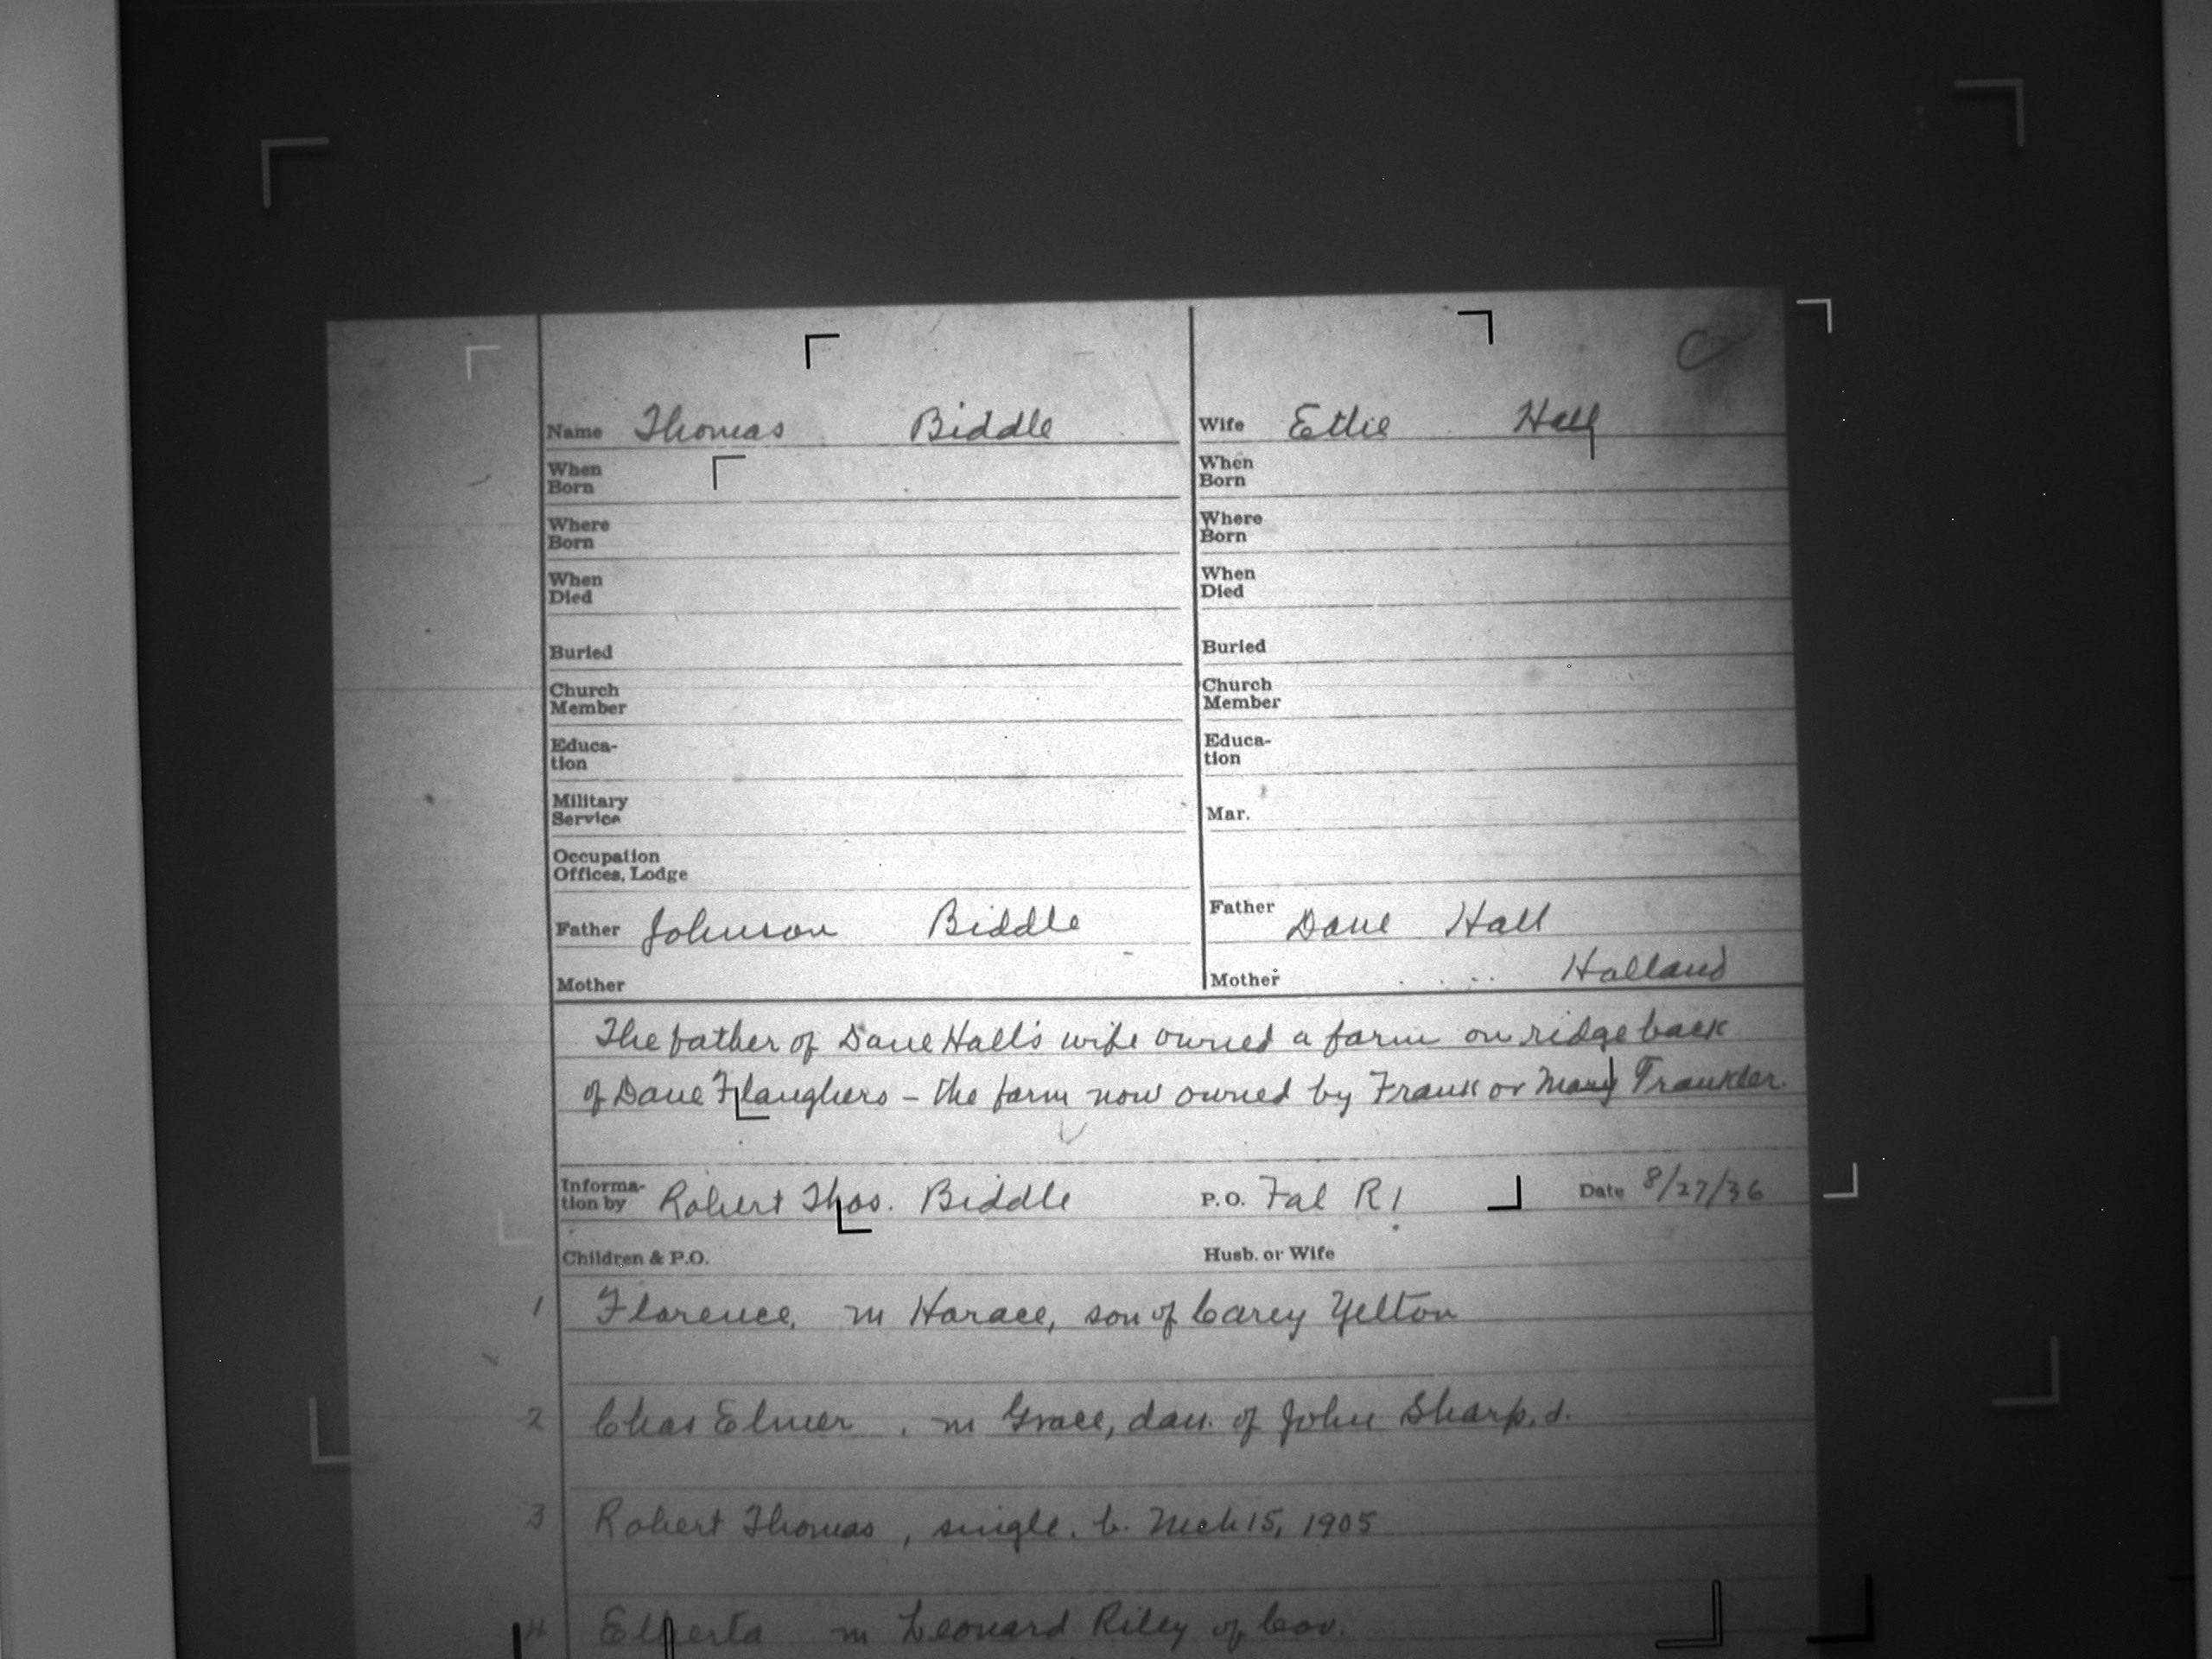 C
Name Thomas Biddle
Wife Ettie Hall
When Born
When Born
Where Born
Where Born
When Died
When Died
Buried
Buried
Church Member
Church Member
Educa-tion
Educa-tion
Military Service
Mar.
Occupation Offices, Lodge
Father Johnson Biddle
Father Dave Hall
Mother
Mother Holland
The father of Dave Hall's wife owned a farm on ridge back
of Dave Flaughers - the farm now owned by Frank or Mary
Informa-tion by Robert Thos. Biddle P.O. Fal R1 Date 8/27/36
Children & P.O. Husb. or Wife
1 Florence, m Horace, son of Carey Yelton
2 Chas Elmer, m Grace, dau. of John Sharp, d.
3 Robert Thomas, single. b. Mch 15, 1905
4 Elberta m Leonard Riley of Cov.